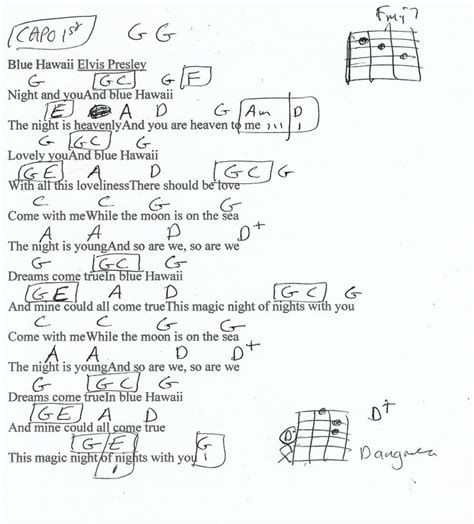 CAPO 1st G G Fmaj7
Blue Hawaii Elvis Presley
G GC G F
Night and youAnd blue Hawaii
E A D G Am D
The night is heavenlyAnd you are heaven to me
G GC G
Lovely youAnd blue Hawaii
GE A D GC G
With all this lovelinessThere should be love
C C G G
Come with meWhile the moon is on the sea
A A D D+
The night is youngAnd so are we, so are we
G GC G
Dreams come trueIn blue Hawaii
GE A D GC G
And mine could all come trueThis magic night of nights with you
C C G G
Come with meWhile the moon is on the sea
A A D D+
The night is youngAnd so are we, so are we
G GC G
Dreams come trueIn blue Hawaii
GE A D
And mine could all come true
D+
G E G
This magic night of nights with you